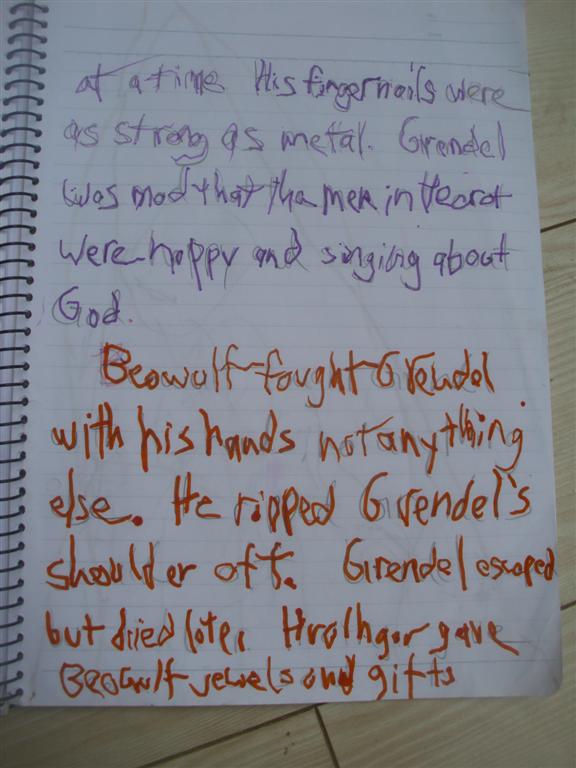 at a time. His fingernails were
as strong as metal. Grendel
was mad that tha men in Heorot
were happy and singing about
God.
Beowulf fought Grendel
with his hands not anything
else. He ripped Grendel's
shoulder off. Grendel escaped
but died later. Hrothgar gave
Beowulf jewels and gifts